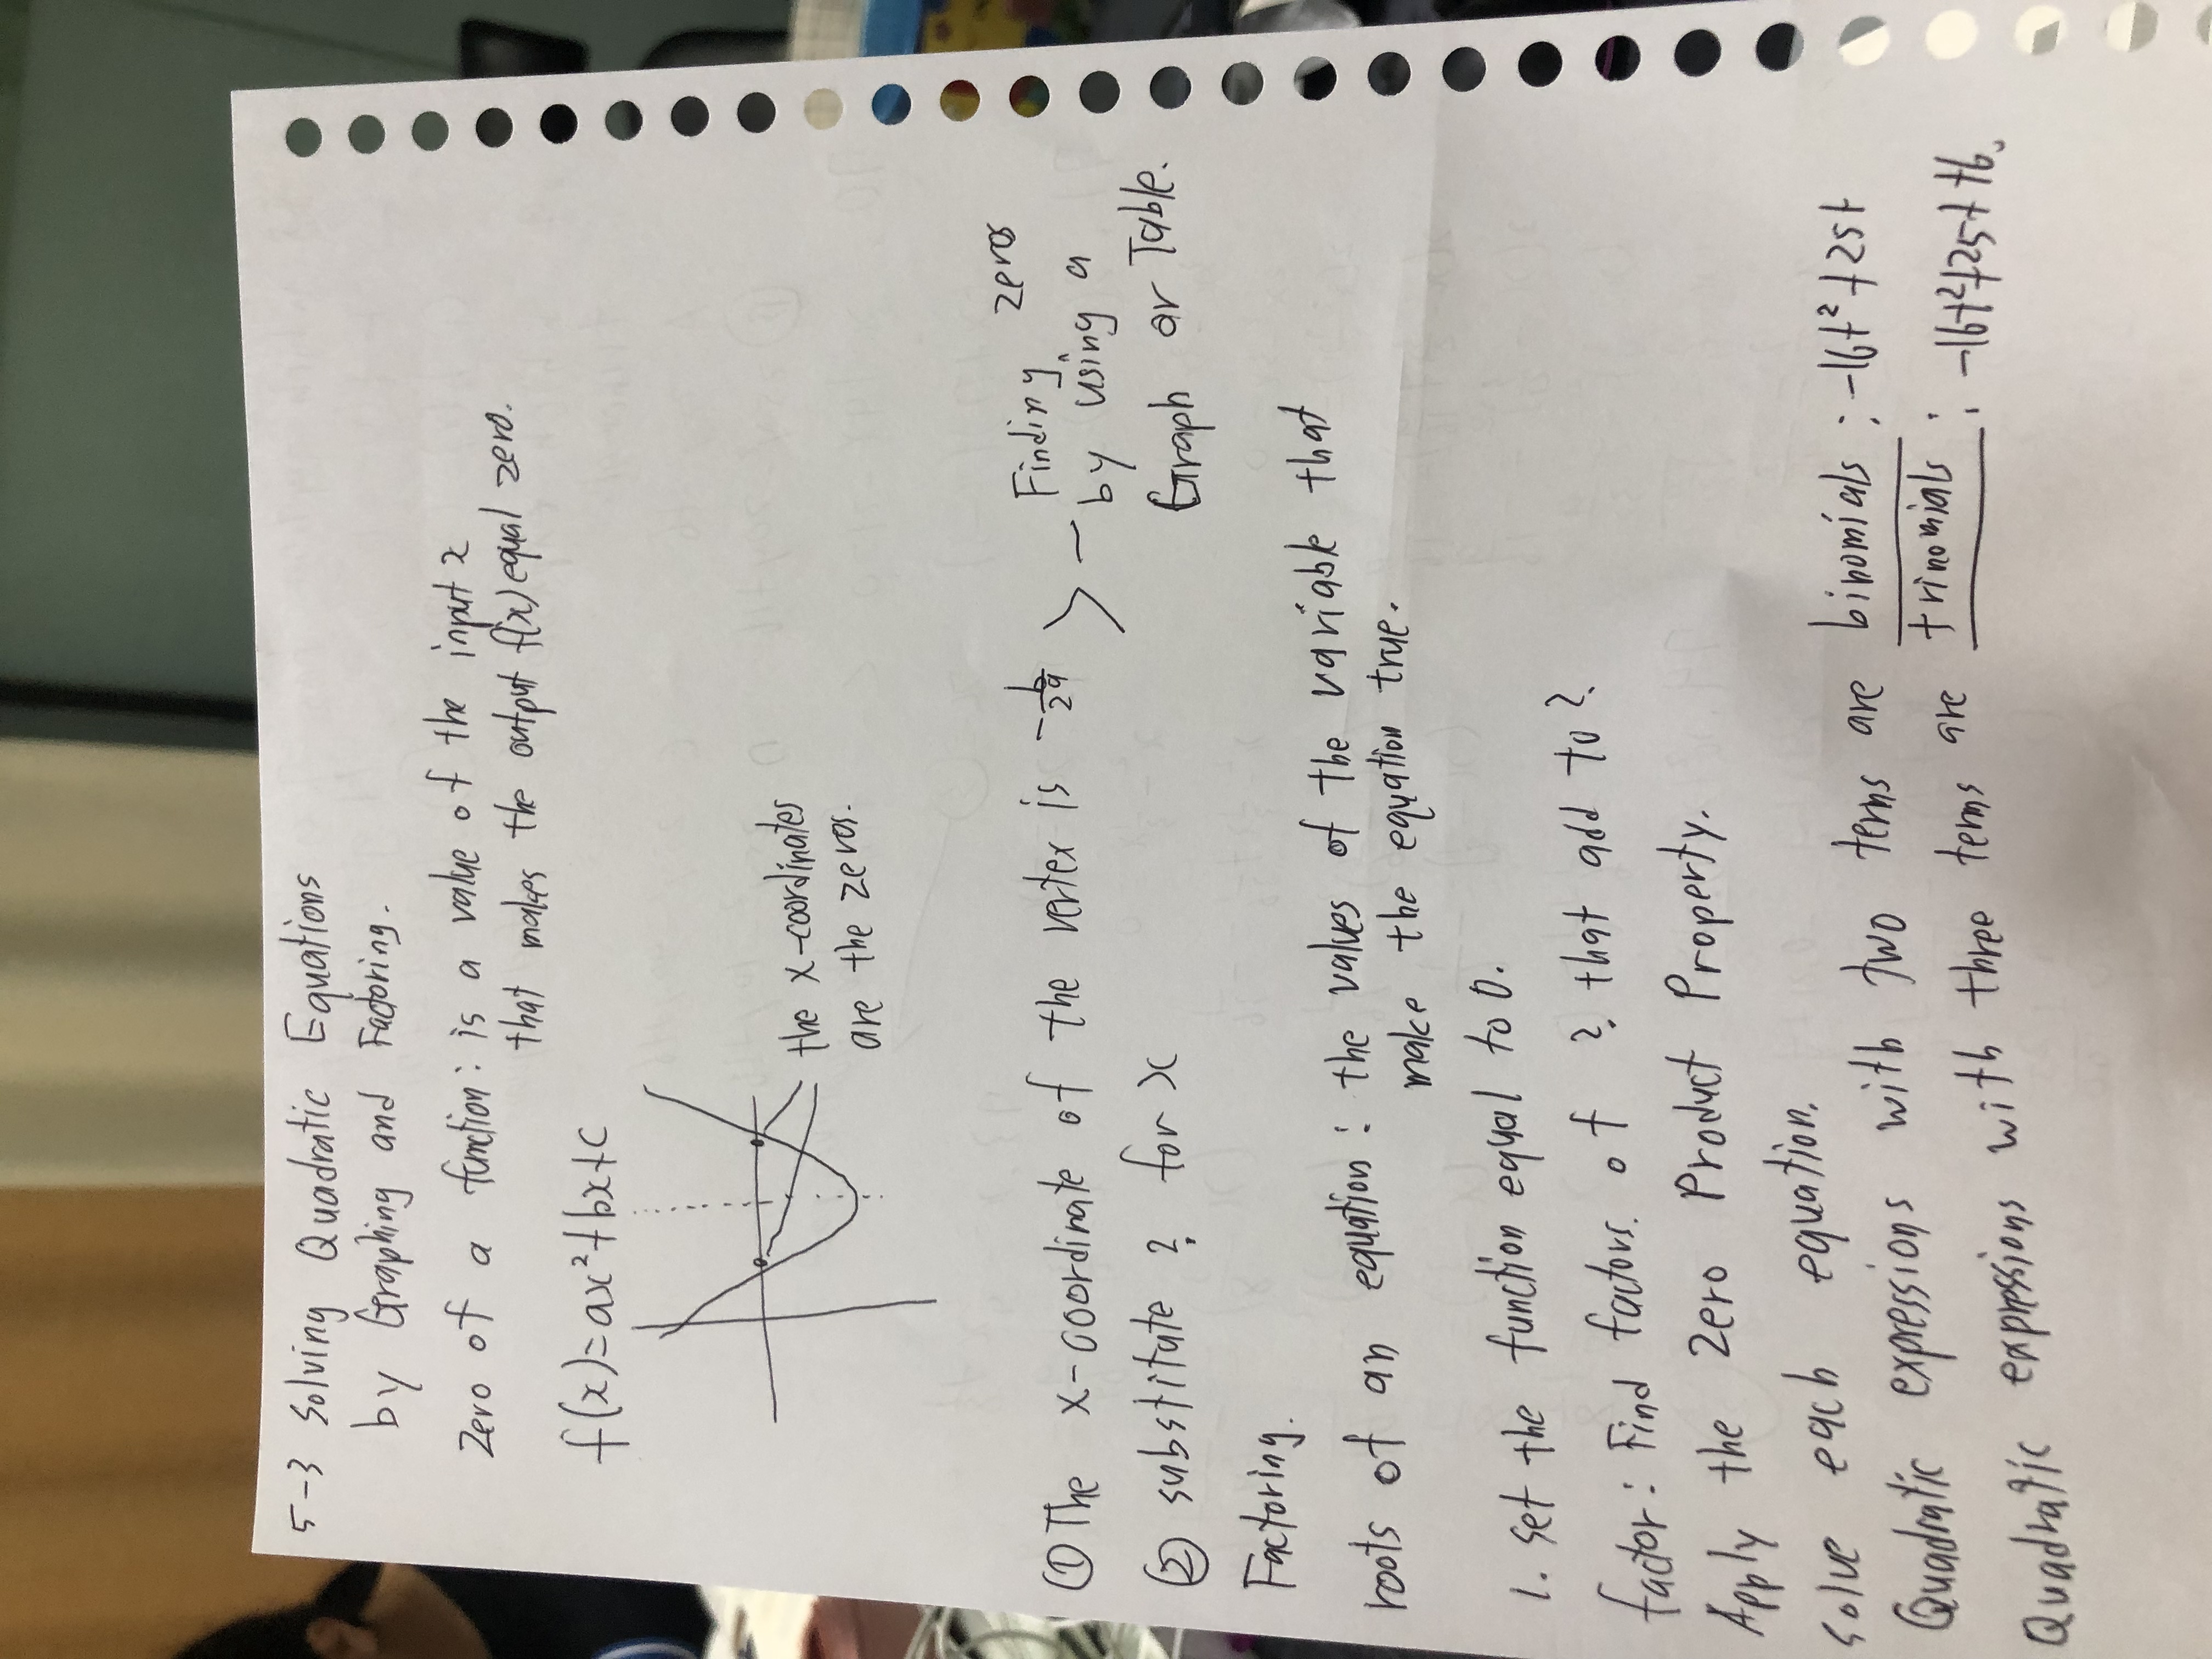 5-3 Solving Quadratic Equations
by Graphing and Factoring.
Zero of a function : is a value of the input x
that makes the output f(x) equal zero.
f(x)=ax²+bx+c
the x-coordinates
are the zeros.
① The x-coordinate of the vertex is -b/2a > - Finding zeros
by using a
Graph or Table.
② substitute ? for x
Factoring.
roots of an equation : the values of the variable that
make the equation true.
1. Set the function equal to 0.
factor : Find factors of ? that add to ?
Apply the Zero Product Property.
Solve each equation.
Quadratic expressions with two terms are binomials : -16t²+25t
Quadratic expressions with three terms are trinomials : -16t²+25t+6.